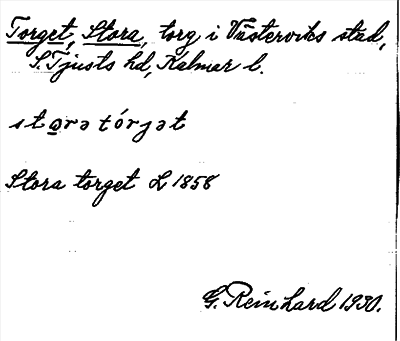 Torget, Stora, torg i Västerviks stad,
S. Tjusts hd, Kalmar l.
sto̲rə tórjət
Stora torget L 1858
G. Reinhard 1930.